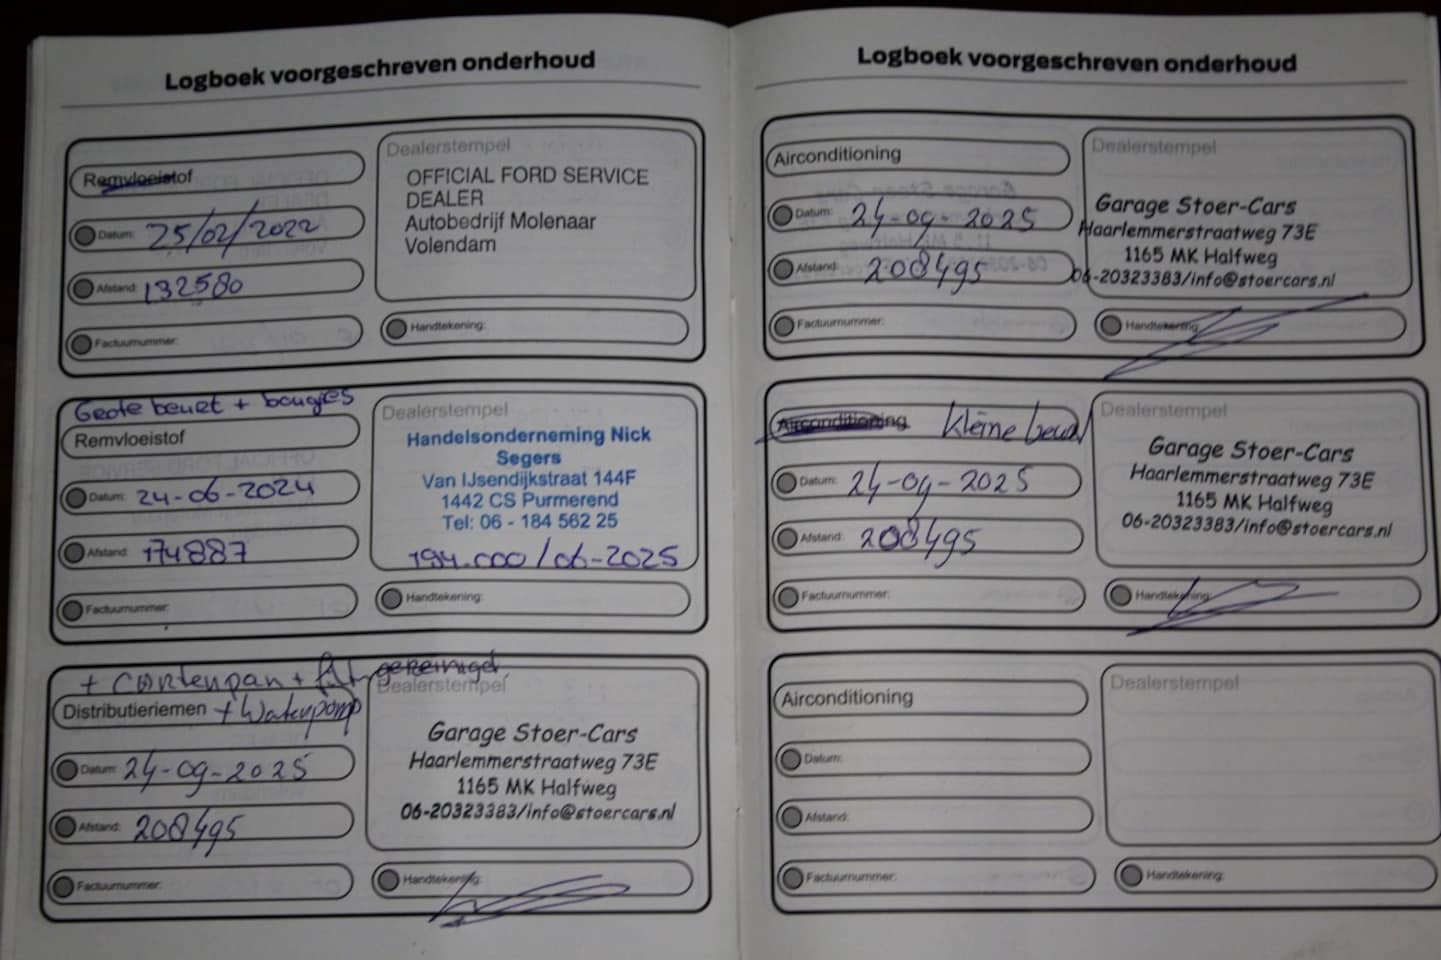 Logboek voorgeschreven onderhoud
Remvloeistof
Datum: 25/02/2022
Afstand: 132580
Factuurnummer:
Dealerstempel
OFFICIAL FORD SERVICE
DEALER
Autobedrijf Molenaar
Volendam
Handtekening:
Grote beurt + bougies
Remvloeistof
Datum: 24-06-2024
Afstand: 174887
Factuurnummer:
Dealerstempel
Handelsonderneming Nick
Segers
Van IJsendijkstraat 144F
1442 CS Purmerend
Tel: 06 - 184 562 25
194.000/06-2025
Handtekening:
+ Carterpan + gereinigd
Distributieriemen + Waterpomp
Datum: 24-09-2025
Afstand: 208495
Factuurnummer:
Dealerstempel
Garage Stoer-Cars
Haarlemmerstraatweg 73E
1165 MK Halfweg
06-20323383/info@stoercars.nl
Handtekening:
Logboek voorgeschreven onderhoud
Airconditioning
Datum: 24-09-2025
Afstand: 208495
Factuurnummer:
Dealerstempel
Garage Stoer-Cars
Haarlemmerstraatweg 73E
1165 MK Halfweg
06-20323383/info@stoercars.nl
Handtekening:
Airconditioning Kleine beurt
Datum: 24-09-2025
Afstand: 208495
Factuurnummer:
Dealerstempel
Garage Stoer-Cars
Haarlemmerstraatweg 73E
1165 MK Halfweg
06-20323383/info@stoercars.nl
Handtekening:
Airconditioning
Datum:
Afstand:
Factuurnummer:
Dealerstempel
Handtekening: